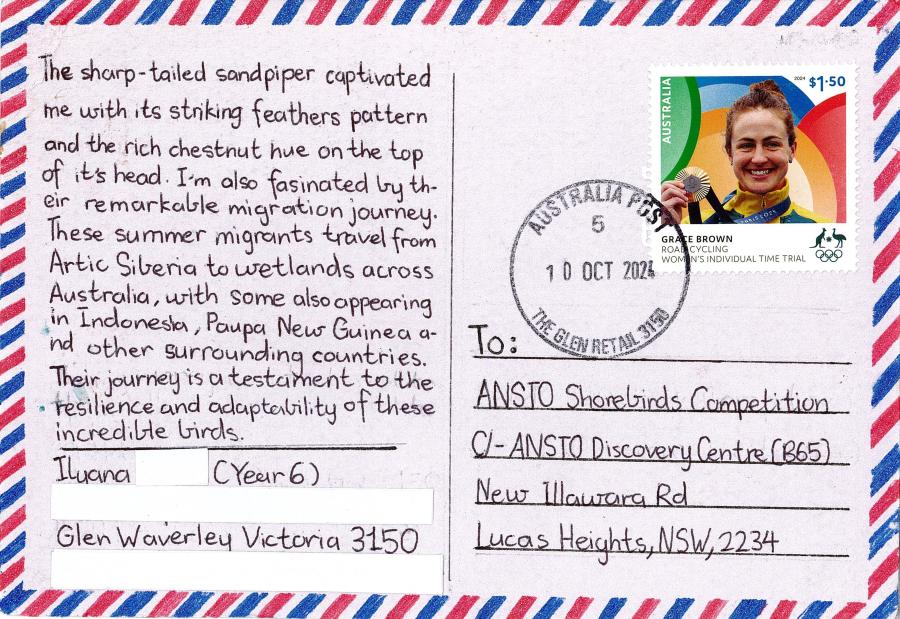 The sharp-tailed sandpiper captivated
me with its striking feathers pattern
and the rich chestnut hue on the top
of it's head. I'm also fasinated by th-
eir remarkable migration journey.
These summer migrants travel from
Artic Siberia to wetlands across
Australia, with some also appearing
in Indonesia, Paupa New Guinea a-
nd other surrounding countries.
Their journey is a testament to the
resilience and adaptability of these
incredible birds.
Ilyana (Year 6)
Glen Waverley Victoria 3150
AUSTRALIA
2024 $1.50
PARIS 2024
GRACE BROWN
ROAD CYCLING
WOMEN'S INDIVIDUAL TIME TRIAL
AUSTRALIA POST
5
10 OCT 2024
THE GLEN RETAIL 3150
To:
ANSTO Shorebirds Competition
C/- ANSTO Discovery Centre (B65)
New Illawara Rd
Lucas Heights, NSW, 2234